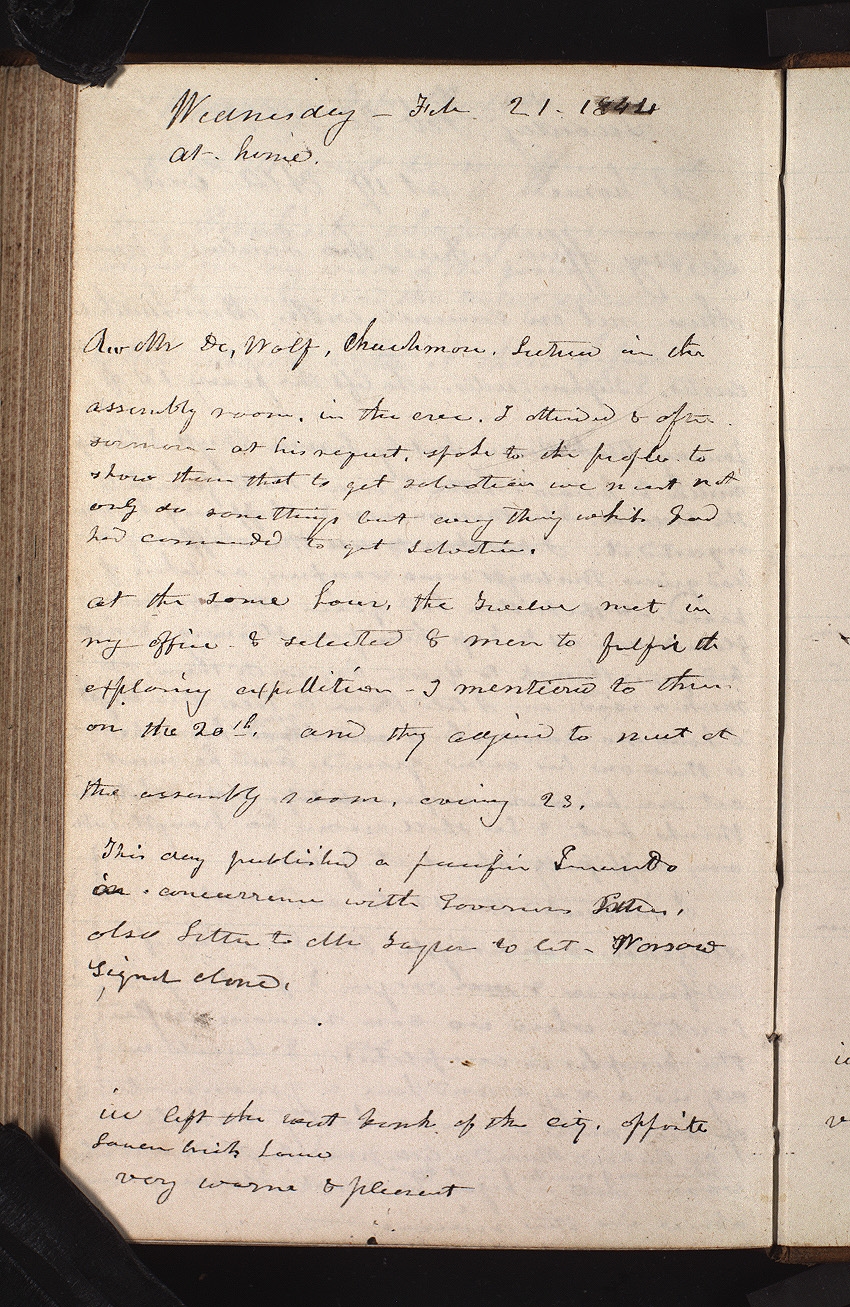 Wednesday - Feb. 21. 1844
at home.
Rev Mr De, Wolf, Churchman. Lectured in the
assembly room. in the eve. I attended & after
sermon - at his request. spoke to the people. to
show them that to get salvation we must not
only do somethings but every thing which God
had commanded to get salvation.
at the same hour, the Twelve met in
my office & selected 8 men to fulfil the
exploring expidition - I mentiond to them
on the 20th. and they adjind to meet at
the assembly room, evening 23.
This day published a pacific Innuendo
in concurrence with Governors Letter,
also Letter to Mr Taylor to let - Warsaw
Signal alone.
ice left the west bank of the city. opposite
brick house
very warm & pleasant